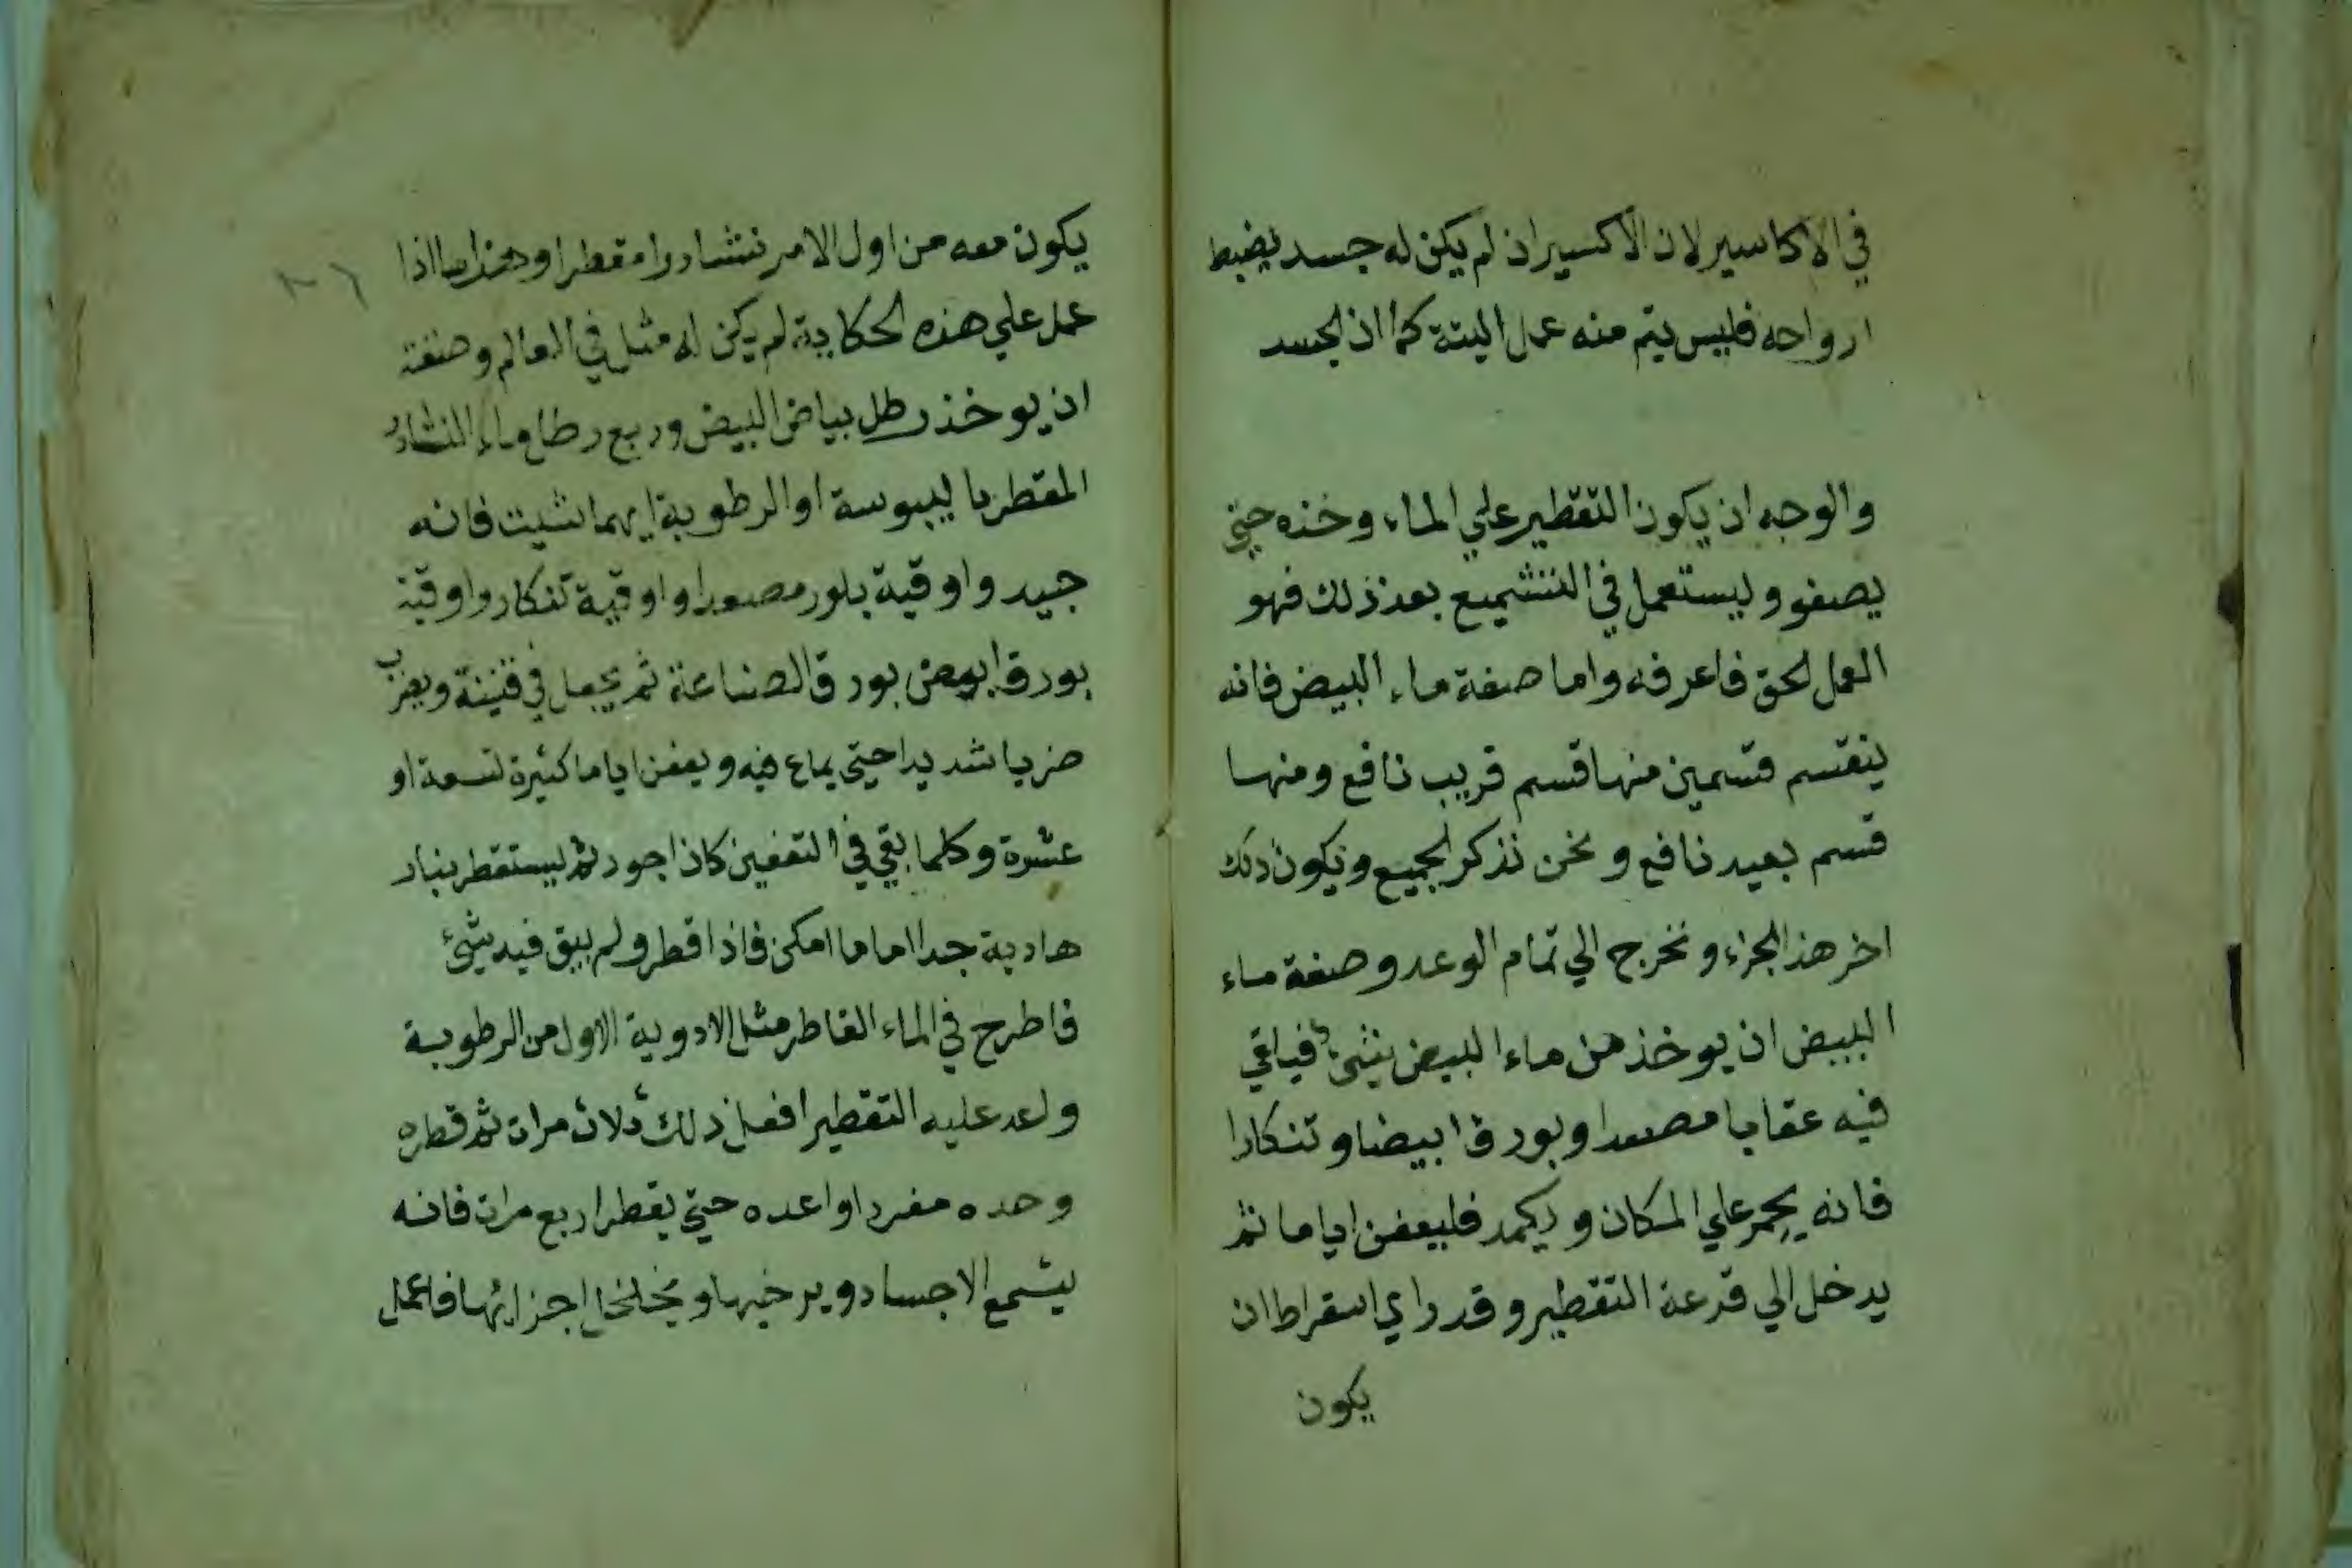 في الاكاسير لان الاكسير ان لم يكن له جسد يضبط
ارواحه فليس يتم منه عمل البتة كما ان الجسد
والوجه ان يكون التقطير علي الماء وخذه حتي
يصفو وليستعمل في التشميع بعد ذلك فهو
العمل الحق فاعرفه واما صفة ماء البيض فانه
ينقسم قسمين منها قسم قريب نافع ومنها
قسم بعيد نافع ونحن نذكر الجميع ويكون ذلك
اخر هذا الجزء ونخرج الي تمام الوعد وصفة ماء
البيض ان يوخذ من ماء البيض شيء فيلقي
فيه عقابا مصعدا وبورقا ابيضا وتنكارا
فانه يحمر علي المكان ويكمد فليعفن اياما ثم
يدخل الي قرعة التقطير وقد راي اسقراط ان
يكون
٢٦
يكون معه من اول الامر نشادرا مقطرا اذا
عمل علي هذه الحكاية لم يكن له مثل في العالم وصفة
ان يوخذ رطل بياض البيض وربع رطل ماء النشادر
المقطر باليبوسة او الرطوبة ايهما شيت فانه
جيد واوقية بلور مصعدا واوقية تنكار واوقية
بورق ابيض بورق الصناعة ثم يجعل في قنينة ويضرب
ضربا شديدا حتي يماع فيه ويعفن اياما كثيرة تسعة او
عشرة وكلما بقي في التعفين كان اجود ثم ليستقطر بنار
هادية جدا اما ما امكن فاذا قطر ولم يبق فيه شيء
فاطرح في الماء القاطر مثل الادوية الاول من الرطوبة
واعد عليه التقطير افعل ذلك ثلاث مرات ثم قطره
وحده مفردا واعده حتي يقطر اربع مرات فانه
يشمع الاجساد ويرخيها ويخلخل اجزائها فاعمل